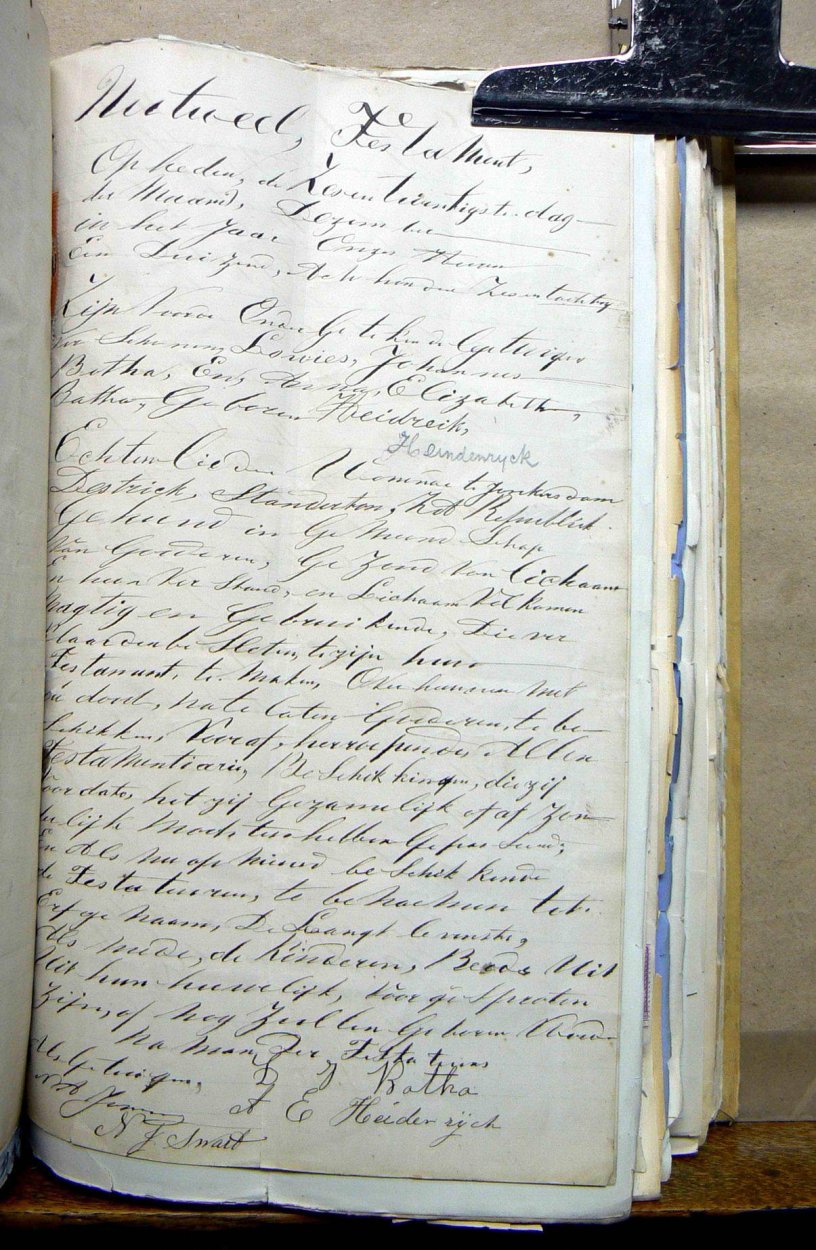 Mutueel, Testament,
Op heden, de Zevenentwintigste dag
der Maand, Dezember
in het Jaar Onzes Heeren
Een Duizend, Acht honderd Zesentachtig
Zijn Voor de Ondergetekende Getuigen
Verschenen, Lowies, Johannes
Botha, En, Anna, Elizabeth,
Botha, Geboren Heidreik,
Heindenryck
Echten lieden Wonende te Jonkersdam
Destrick, Standerton, ZA Republiek
Gehuud in Gemeendschap
van Goederen, Gezond van lichaam
En hun Verstand, en Lichaam Volkomen
magtig en Gebruikende, Die ver
klaarden besloten te zijn hun
Testament, te maken, Over hunne met
de dood, na te laten Goederen, te be-
schikken, Vooraf, herroepende, Allen
Testamentiaire, Beschikkingen, die zij
voor date, het zij Gezamelijk of af Zon
derlijk mochten hebben Gepasseerd,
En Als nu op nieuw beschikkende
de Testateuren, te benoemen tot
Erfgenaam, De Langst levenste,
Als mede, de Kinderen, Beede Uit
Uit hun huwelijk, voortgesproten
Zijn, of Nog Zullen Geboren Word
Na man, Der, Testateurs
Als Getuigen, Botha
A E Heiderijch
N J Swart